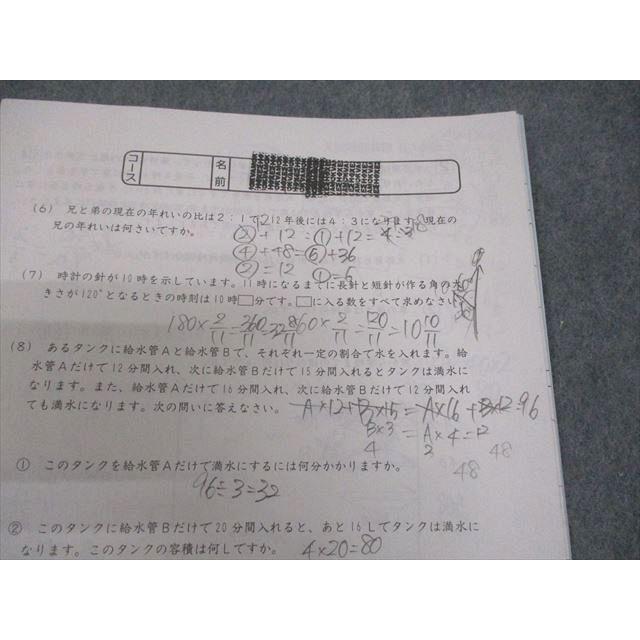 コース 名前
(6) 兄と弟の現在の年れいの比は2:1で、12年後には4:3になります。現在の
兄の年れいは何さいですか。
②+12=①+12=4:3
④+48=⑥+36
②=12 ①=6
(7) 時計の針が10時を示しています。11時になるまでに長針と短針が作る角の大
きさが120°となるときの時刻は10時□分です。□に入る数をすべて求めなさい。
180×2/11=360/11=32 8/11 60×2/11=120/11=10 10/11
(8) あるタンクに給水管Aと給水管Bで、それぞれ一定の割合で水を入れます。給
水管Aだけで12分間入れ、次に給水管Bだけで15分間入れるとタンクは満水に
なります。また、給水管Aだけで16分間入れ、次に給水管Bだけで12分間入れ
ても満水になります。次の問いに答えなさい。
A×12+B×15=A×16+B×12=96
B×3=A×4=12
4 3 48 48
① このタンクを給水管Aだけで満水にするには何分かかりますか。
96÷3=32
② このタンクに給水管Bだけで20分間入れると、あと16Lでタンクは満水に
なります。このタンクの容積は何Lですか。
4×20=80